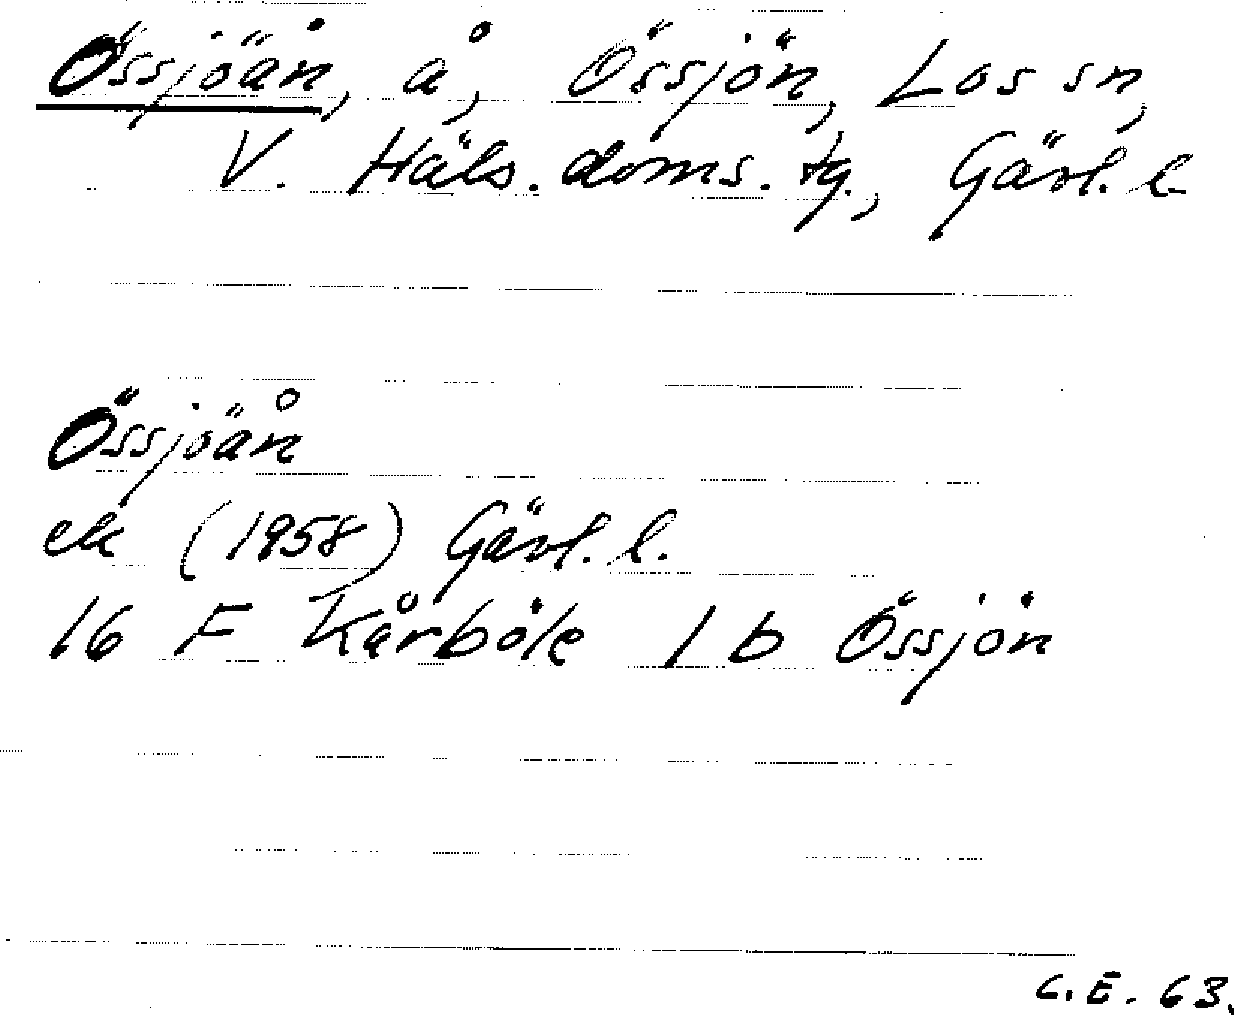 Össjöån, å, Össjön, Los sn,
V. Häls. doms. tg., Gävl. l.
Össjöån
ek (1958) Gävl. l.
16 F Kårböle 1 b Össjön
C.E. 63.